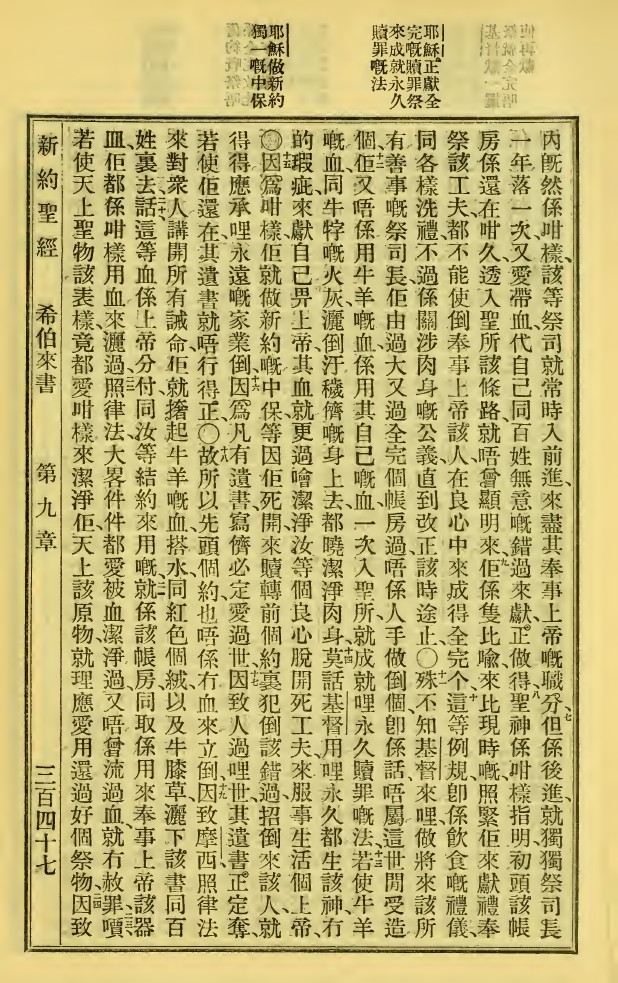 耶穌正獻全
完嘅贖罪祭
來成就永久
贖罪嘅法
耶穌做新約
獨一嘅中保
內既然係咁樣、該等祭司就常時入前進、來盡其奉事上帝嘅職分、七但係後進、就獨獨祭司長
一年落一次、又愛帶血代自己同百姓無意嘅錯過來獻、正做得、八聖神係咁樣指明、初頭該帳
房係還在咁久、透入聖所該條路、就唔曾顯明來、九佢係隻比喻、來比現時嘅、照緊佢來獻禮奉
祭、該工夫都不能使倒奉事上帝該人、在良心中來成得全完个、十這等例規、卽係飲食嘅禮儀、
同各樣洗禮、不過係關涉肉身嘅公義、直到改正該時途止〇十一殊不知基督來哩、做將來該所
有善事嘅祭司長、佢由過大又過全完個帳房過、唔係人手做倒個、卽係話、唔屬這世間受造
個、十二佢又唔係用牛羊嘅血、係用其自己嘅血、一次入聖所、就成就哩永久贖罪嘅法、十三若使牛羊
嘅血、同牛牸嘅火灰、灑倒汙穢儕嘅身上去、都曉潔淨肉身、十四莫話基督用哩永久都生該神、冇
的瑕疵來獻自己畀上帝、其血就更過噲潔淨汝等個良心、脫開死工夫、來服事生活個上帝、
〇十五因爲咁樣、佢就做新約嘅中保、等因佢死開來贖轉前個約裏犯倒該錯過、招倒來該人、就
得得應承哩永遠嘅家業倒、十六因爲凡有遺書、寫儕必定愛過世、十七因致人過哩世、其遺書正定奪、
若使佢還在、其遺書就唔行得正〇十八故所以先頭個約、也唔係冇血來立倒、十九因致摩西照律法
來對衆人講開所有誡命、佢就㩗起牛羊嘅血、搭水、同紅色個絨、以及牛膝草、灑下該書、同百
姓裏去、二十話、這等血係上帝分付同汝等結約來用嘅、二一就係該帳房、同取係用來奉事上帝該器
皿、佢都係咁樣用血來灑過、二二照律法大畧件件都愛被血潔淨過、又唔曾流過血、就冇赦罪、二三嘪
若使天上聖物該表樣、竟都愛咁樣來潔淨佢、天上該原物、就理應愛用還過好個祭物、二四因致
新約聖經 希伯來書 第九章 三百四十七